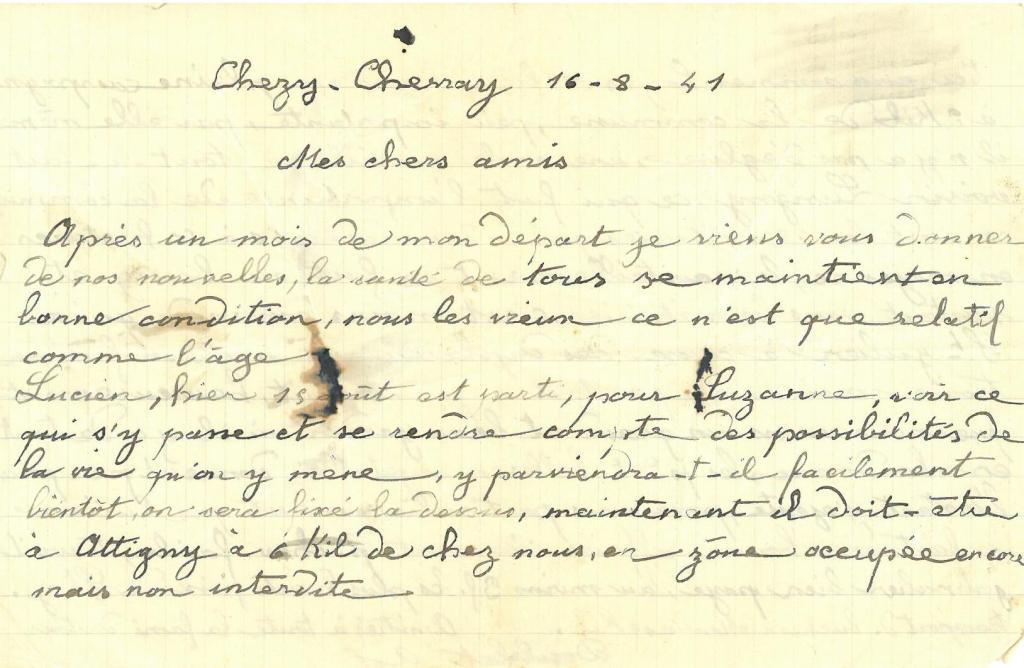 Chezy-Cherray 16-8-41
Mes chers amis
Après un mois de mon départ je viens vous donner
de nos nouvelles, la santé de tous se maintient en
bonne condition, nous les vieux ce n'est que relatif
comme l'âge
Lucien, hier 15 août est parti, pour Suzanne, voir ce
qui s'y passe et se rendre compte des possibilités de
la vie qu'on y mène, y parviendra-t-il facilement
bientôt on sera fixé la dessus, maintenant il doit-être
à Attigny à 6 Kil de chez nous, en zône occupée encore
mais non interdite.